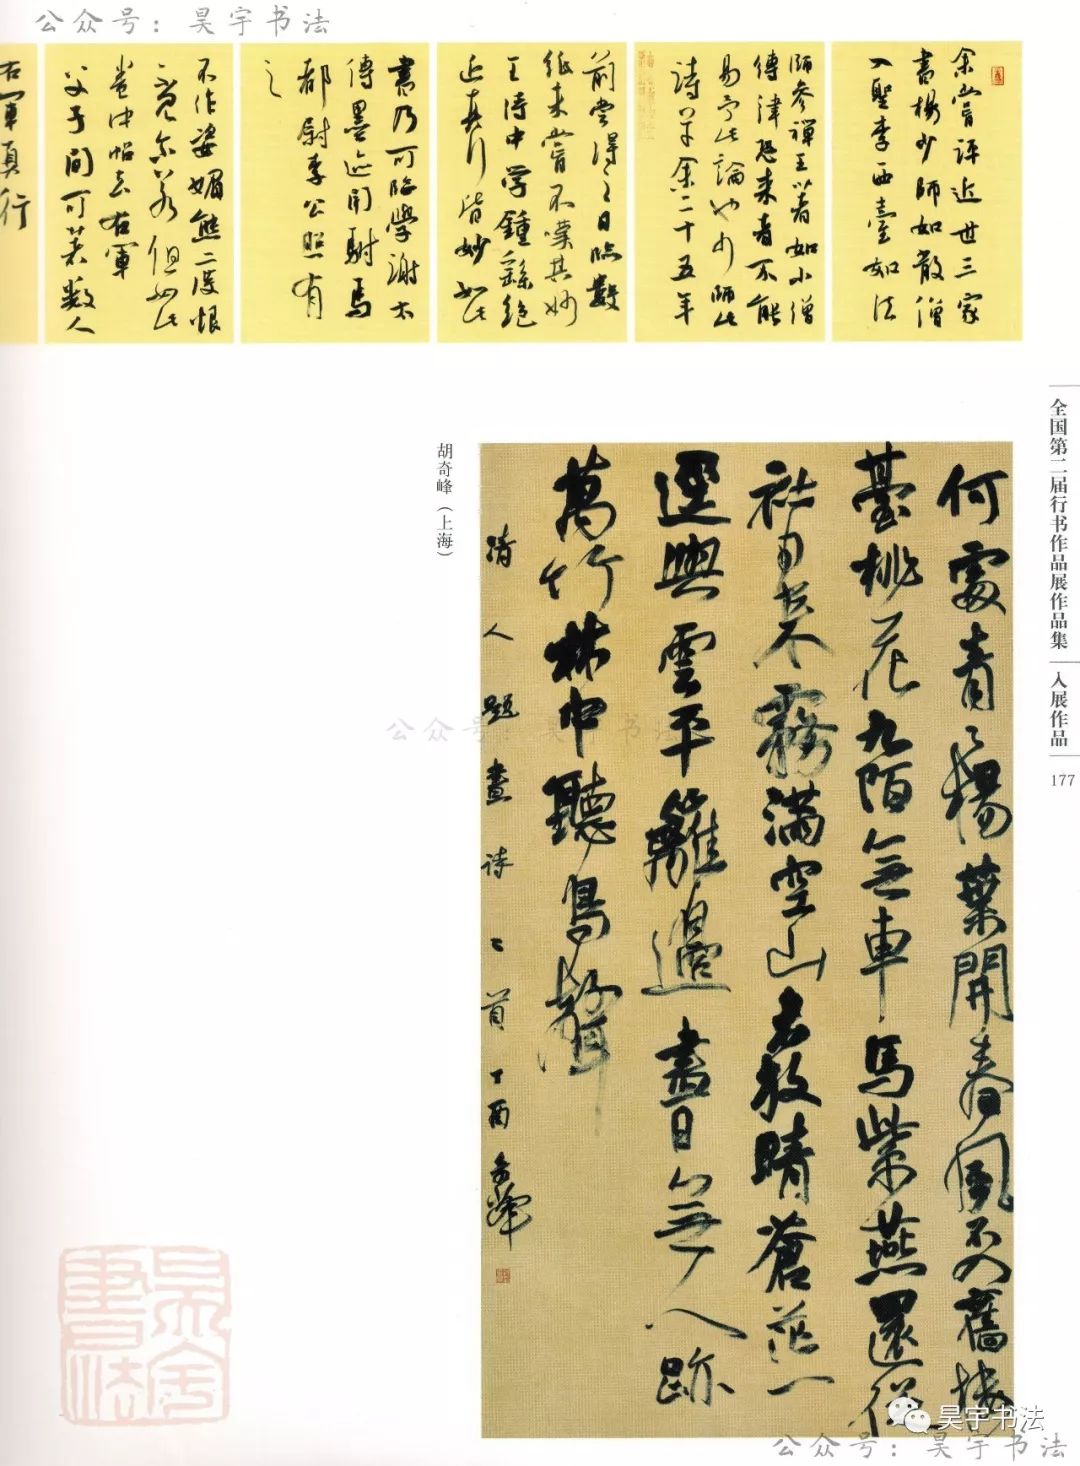 公众号：昊宇书法
余嘗评近世三家
書楊少師如散僧
入聖李西臺如法
師參禪王著如小僧
縛律恐来者不能
易予此論也少師此
詩草余二十五年
前嘗得之日臨數
紙未嘗不嘆其妙
王侍中学鍾繇絶
近真行皆妙如此
書乃可臨學謝太
傅墨迹聞駙馬
都尉李公照有
之
不作姿媚態二湲恨
卷中帖与右軍
父子間可著数人
右軍真行
全国第二届行书作品展作品集
入展作品
177
何處青々楊葉開春風不入舊楼
臺桃花九陌無車馬紫燕還從
社日来
霧满空山未放晴蒼茫一
逕與雲平籬邊盡日無人跡
萬竹林中聽鳥聲
清人题畫诗二首丁酉奇峰
胡奇峰（上海）
公众号：昊宇书法
昊宇书法
昊宇书法
公众号：昊宇书法